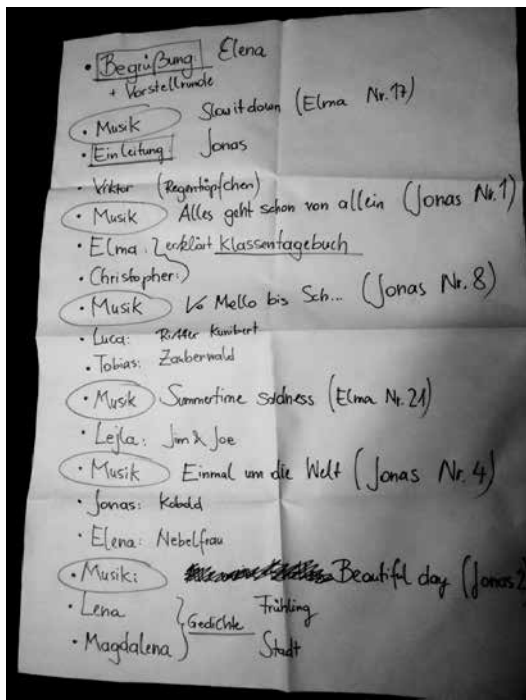 • Begrüßung: Elena
+ Vorstellrunde
• Musik Slow it down (Elma Nr. 17)
• Einleitung: Jonas
• Viktor (Regentöpfchen)
• Musik Alles geht schon von allein (Jonas Nr. 1)
• Elma: } erklärt Klassentagebuch
• Christopher:
• Musik Vo Mello bis Sch... (Jonas Nr. 8)
• Luca: Ritter Kunibert
• Tobias: Zauberwald
• Musik Summertime sadness (Elma Nr. 21)
• Lejla: Jim & Joe
• Musik Einmal um die Welt (Jonas Nr. 4)
• Jonas: Kobold
• Elena: Nebelfrau
• Musik: Beautiful day (Jonas 2
• Lena } Gedichte Frühling
• Magdalena Stadt